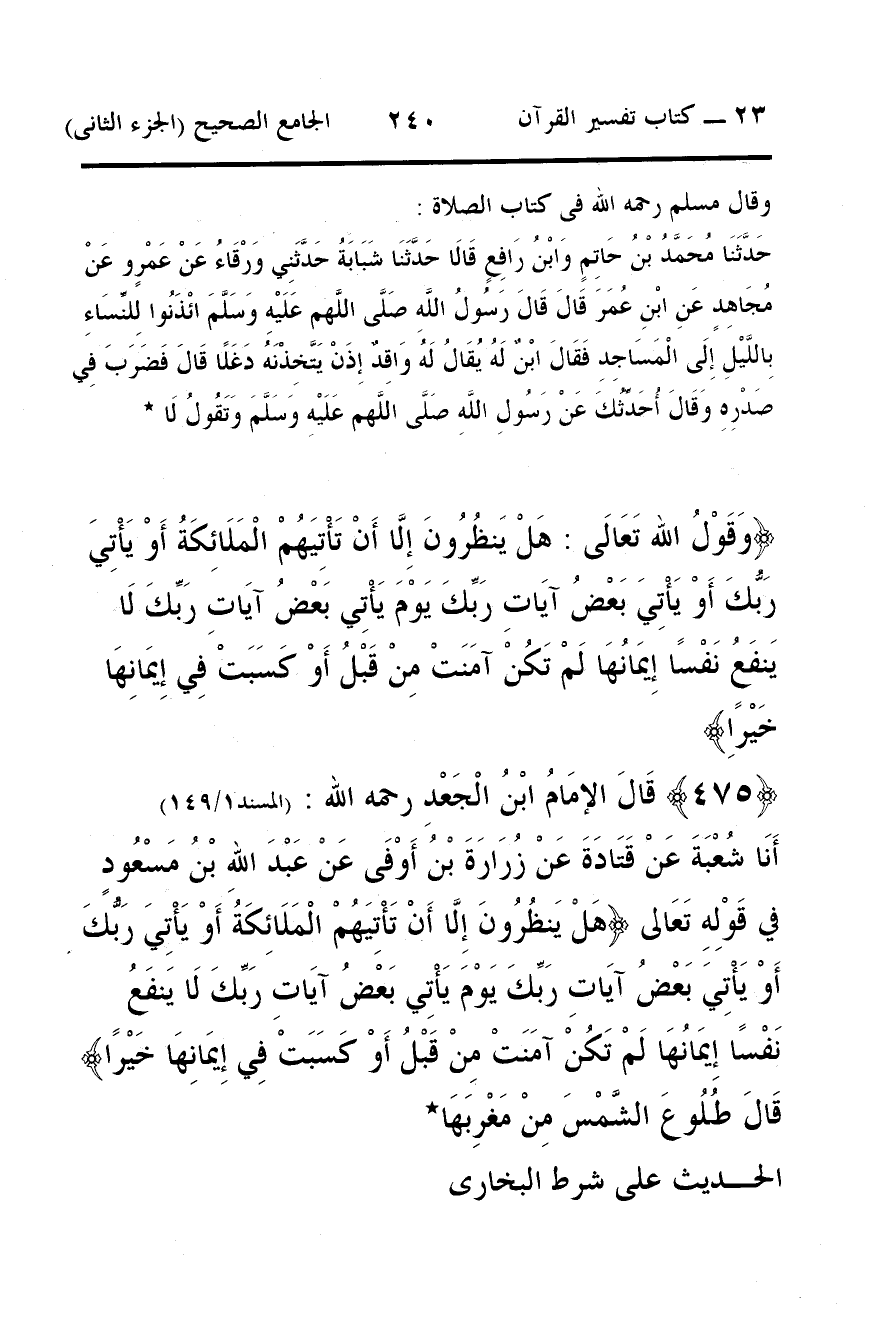 ٢٣ ــ كتاب تفسير القرآن ٢٤٠ الجامع الصحيح (الجزء الثانى)
وقال مسلم رحمه الله فى كتاب الصلاة :
حَدَّثَنَا مُحَمَّدُ بْنُ حَاتِمٍ وَابْنُ رَافِعٍ قَالَا حَدَّثَنَا شَبَابَةُ حَدَّثَنِي وَرْقَاءُ عَنْ عَمْرٍو عَنْ
مُجَاهِدٍ عَنِ ابْنِ عُمَرَ قَالَ قَالَ رَسُولُ اللَّهِ صَلَّى اللَّهم عَلَيْهِ وَسَلَّمَ ائْذَنُوا لِلنِّسَاءِ
بِاللَّيْلِ إِلَى الْمَسَاجِدِ فَقَالَ ابْنٌ لَهُ يُقَالُ لَهُ وَاقِدٌ إِذَنْ يَتَّخِذْنَهُ دَغَلًا قَالَ فَضَرَبَ فِي
صَدْرِهِ وَقَالَ أُحَدِّثُكَ عَنْ رَسُولِ اللَّهِ صَلَّى اللَّهم عَلَيْهِ وَسَلَّمَ وَتَقُولُ لَا *
﴿وَقَوْلُ اللهِ تَعَالَى : هَلْ يَنظُرُونَ إِلَّا أَنْ تَأْتِيَهُمْ الْمَلَائِكَةُ أَوْ يَأْتِيَ
رَبُّكَ أَوْ يَأْتِيَ بَعْضُ آيَاتِ رَبِّكَ يَوْمَ يَأْتِي بَعْضُ آيَاتِ رَبِّكَ لَا
يَنفَعُ نَفْسًا إِيمَانُهَا لَمْ تَكُنْ آمَنَتْ مِنْ قَبْلُ أَوْ كَسَبَتْ فِي إِيمَانِهَا
خَيْرًا﴾
﴿٤٧٥﴾ قَالَ الإِمَامُ ابْنُ الْجَعْدِ رحمه الله : (المسند١/١٤٩)
أَنَا شُعْبَةَ عَنْ قَتَادَةَ عَنْ زُرَارَةَ بْنُ أَوْفَى عَنْ عَبْدَ اللهِ بْنُ مَسْعُودٍ
فِي قَوْلِهِ تَعَالى ﴿هَلْ يَنظُرُونَ إِلَّا أَنْ تَأْتِيَهُمْ الْمَلَائِكَةُ أَوْ يَأْتِيَ رَبُّكَ
أَوْ يَأْتِيَ بَعْضُ آيَاتِ رَبِّكَ يَوْمَ يَأْتِي بَعْضُ آيَاتِ رَبِّكَ لَا يَنفَعُ
نَفْسًا إِيمَانُهَا لَمْ تَكُنْ آمَنَتْ مِنْ قَبْلُ أَوْ كَسَبَتْ فِي إِيمَانِهَا خَيْرًا﴾
قَالَ طُلُوعَ الشَّمْسَ مِنْ مَغْرِبَهَا*
الحـــديث على شرط البخارى